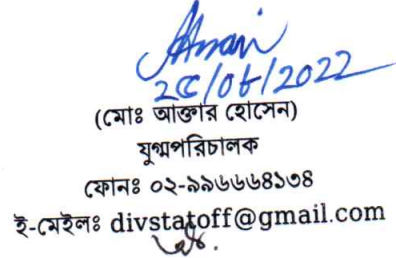 ২৫/০৮/২০২২
(মোঃ আক্তার হোসেন)
যুগ্মপরিচালক
ফোনঃ ০২-৯৯৬৬৬৪১৩৪
ই-মেইলঃ divstatoff@gmail.com